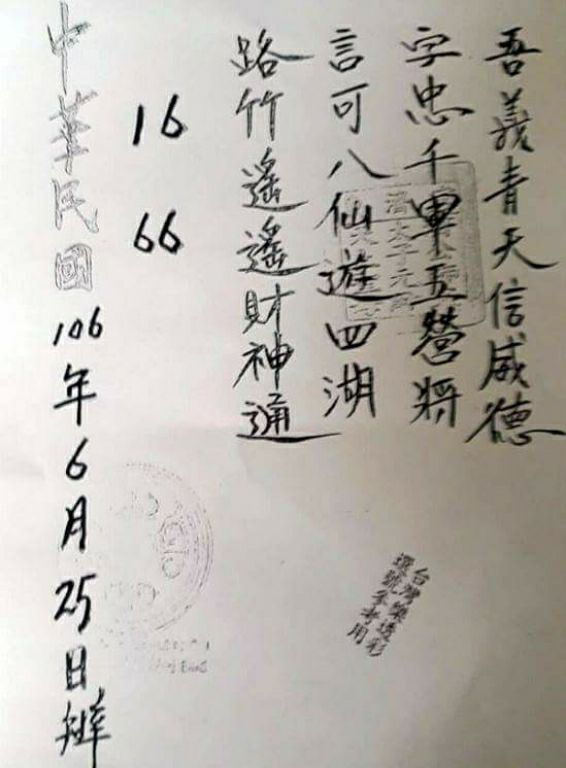 吾義青天信威德
字忠千軍五營將
言可八仙遊四湖
路竹遙遙財神通
16
66
中華民國106年6月25日辦
台灣樂透彩
選號參考用